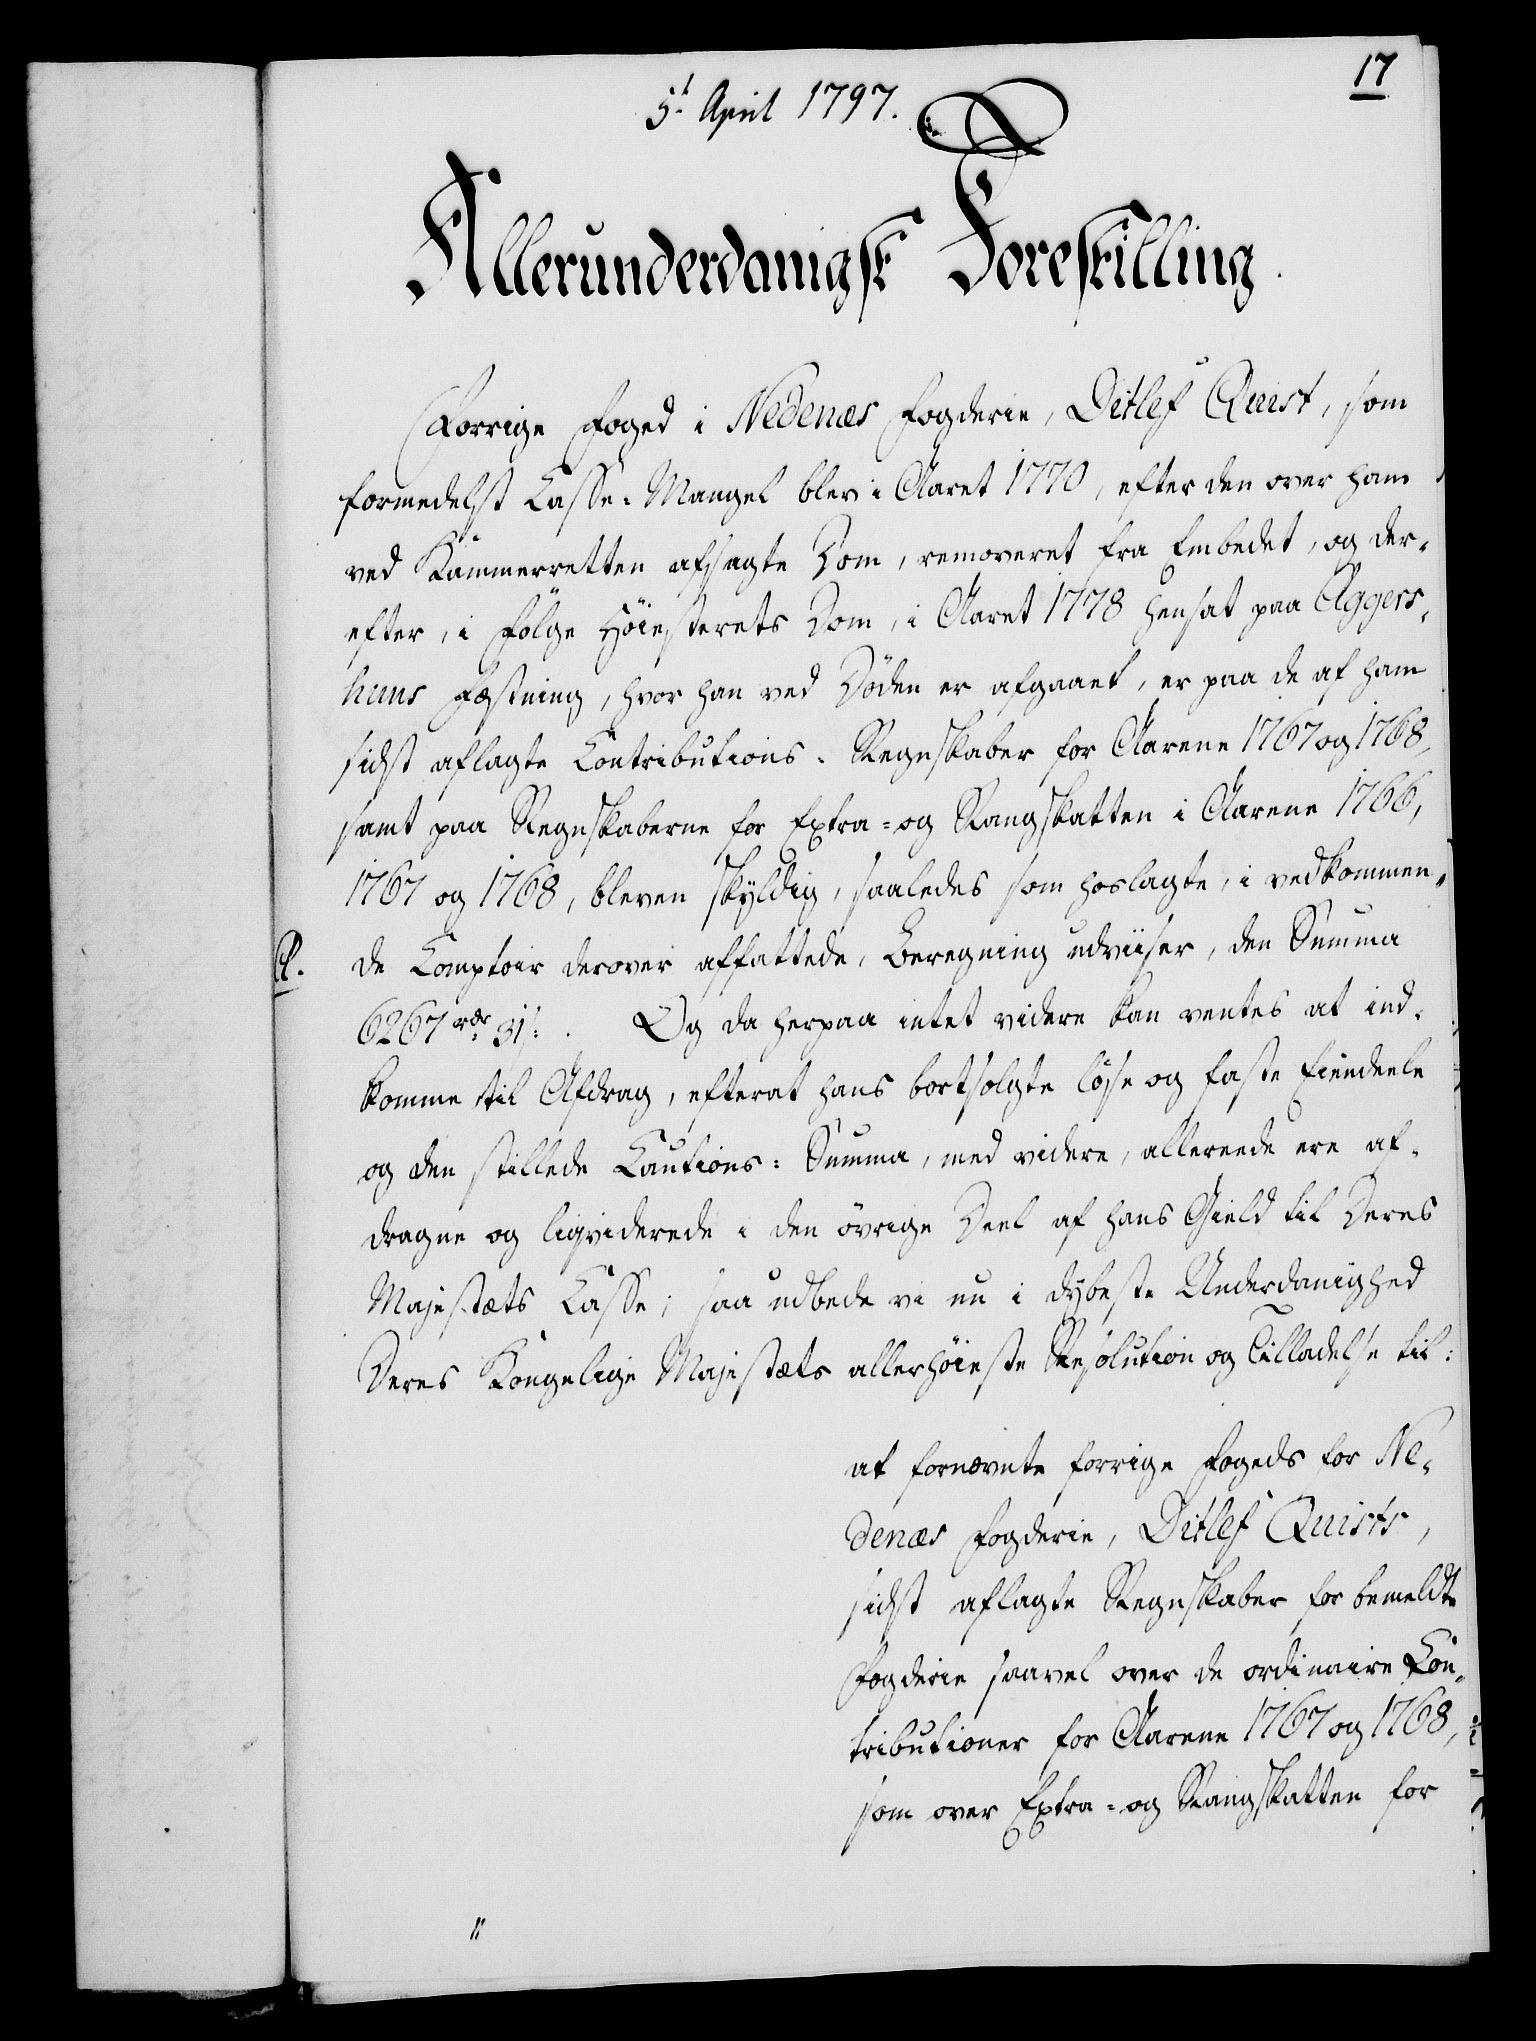 17
5t April 1797.
Allerunderdanigst Forestilling.
Forrige Foged i Nedenæs Fogderie, Ditlef Quist, som
formedelst Casse-Mangel blev i Aaret 1770, efter den over ham
ved Kammerretten afsagte Dom, removeret fra Embedet, og der-
efter, i Følge Høiesterets Dom, i Aaret 1778 hensat paa Aggers-
huus Fæstning, hvor han ved Døden er afgaaet, er paa de af ham
sidst aflagte Contributions-Regnskaber for Aarene 1767 og 1768,
samt paa Regnskaberne for Extra- og Rangskatten i Aarene 1766,
1767 og 1768, bleven skyldig, saaledes som hoslagte, i vedkommen-
A. de Comptoir derover affattede, Beregning udviiser, den Summa
6267 rdr 31 s. Og da herpaa intet videre kan ventes at ind-
komme til Afdrag, efterat hans bortsolgte løse og faste Eiendeele
og den stillede Cautions-Summa, med videre, allereede ere af-
dragne og liqviderede i den øvrige Deel af hans Gield til Deres
Majestæts Casse; saa udbede vi nu i dybeste Underdanighed
Deres Kongelige Majestæts allerhøieste Resolution og Tilladelse til:
at fornævnte forrige Fogeds for Ne-
denæs Fogderie, Ditlef Quists,
sidst aflagte Regnskaber for bemeldte
Fogderie saavel over de ordinaire Con-
tributioner for Aarene 1767 og 1768,
som over Extra- og Rangskatten for